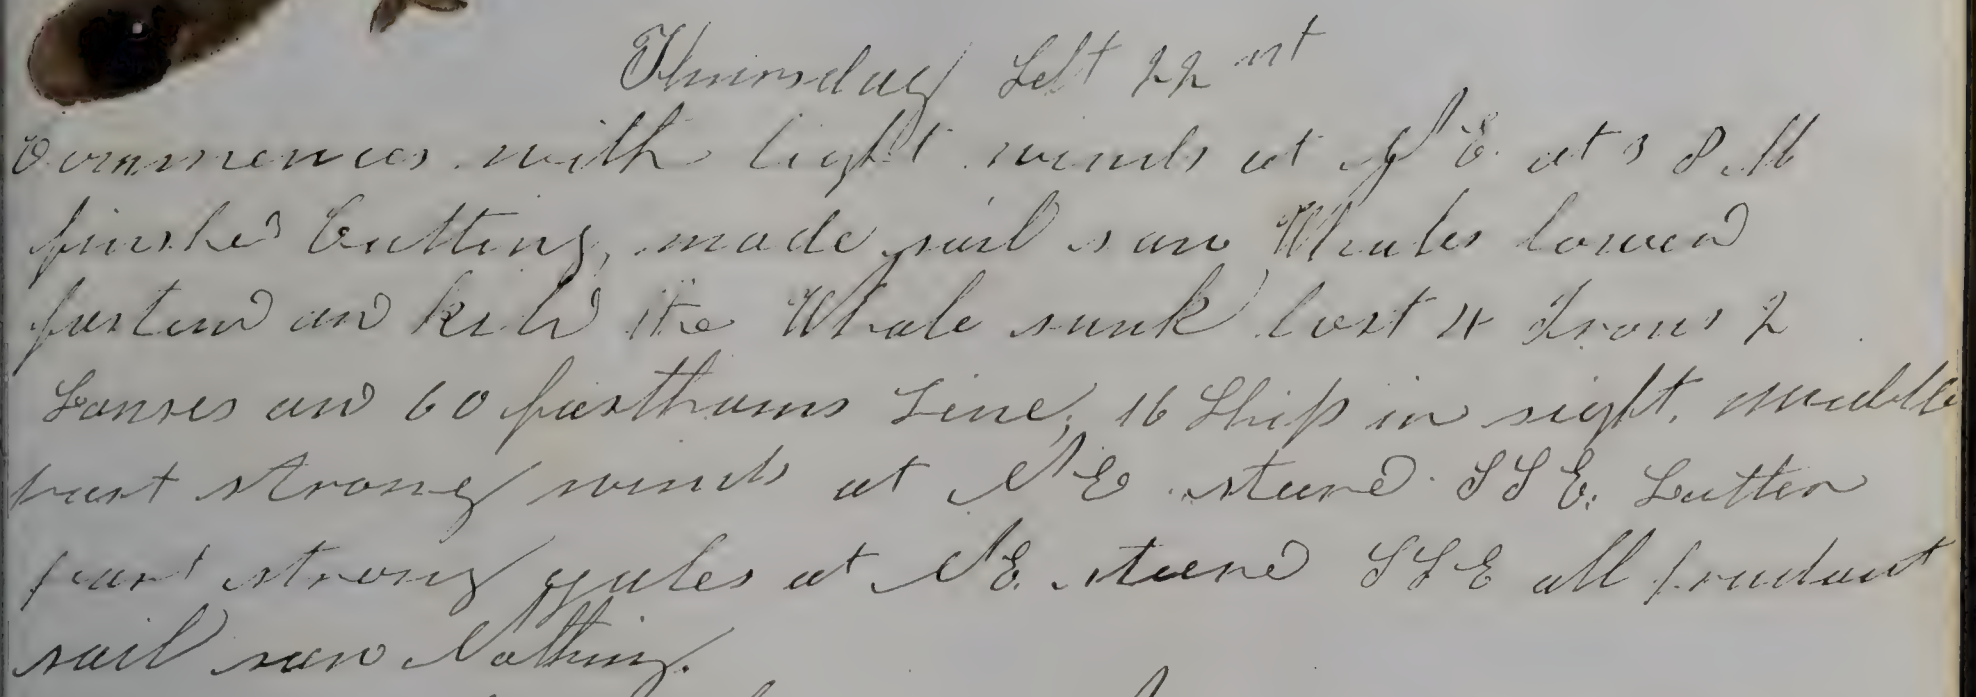 Thursday Sept 22 nst
Commences with light winds at N E. at 3 P.M
finshed Cutting, made sail saw Whales lowerd
fastend and kild the Whale sunk lost 4 Irons 2
Lanses and 60 fasthams Line, 16 Ship in sight. Middle
part strong winds at N E steerd SSE. Latter
part strong gales at N E. steerd SSE all prudant
sail saw Nothing.